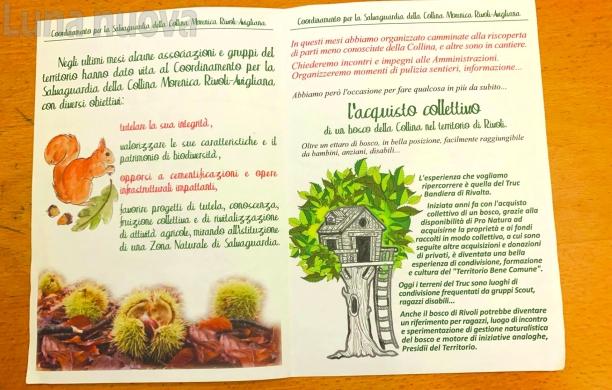 Luna nuova
Coordinamento per la Salvaguardia della Collina Morenica Rivoli-Avigliana
Negli ultimi mesi alcune associazioni e gruppi del
territorio hanno dato vita al Coordinamento per la
Salvaguardia della Collina Morenica, Rivoli-Avigliana,
con diversi obiettivi:
tutelare la sua integrità,
valorizzare le sue caratteristiche e il
patrimonio di biodiversità,
opporci a cementificazioni e opere
infrastrutturali impattanti,
favorire progetti di tutela, conoscenza,
fruizione collettiva e di rivitalizzazione
di attività agricole, mirando all'istituzione
di una Zona Naturale di Salvaguardia.
Coordinamento per la Salvaguardia della Collina Morenica Rivoli-Avigliana
In questi mesi abbiamo organizzato camminate alla riscoperta
di parti meno conosciute della Collina, e altre sono in cantiere.
Chiederemo incontri e impegni alle Amministrazioni.
Organizzeremo momenti di pulizia sentieri, informazione...
Abbiamo però l'occasione per fare qualcosa in più da subito...
l'acquisto collettivo
di un bosco della Collina nel territorio di Rivoli.
Oltre un ettaro di bosco, in bella posizione, facilmente raggiungibile
da bambini, anziani, disabili...
L'esperienza che vogliamo
ripercorrere è quella del Truc
Bandiera di Rivalta.
Iniziata anni fa con l'acquisto
collettivo di un bosco, grazie alla
disponibilità di Pro Natura ad
acquisirne la proprietà e ai fondi
raccolti in modo collettivo, a cui sono
seguite altre acquisizioni e donazioni
di privati, è diventata una bella
esperienza di condivisione, formazione
e cultura del "Territorio Bene Comune".
Oggi i terreni del Truc sono luoghi di
condivisione frequentati da gruppi Scout,
ragazzi disabili...
Anche il bosco di Rivoli potrebbe diventare
un riferimento per ragazzi, luogo di incontro
e sperimentazione di gestione naturalistica
del bosco e motore di iniziative analoghe,
Presidii del Territorio.